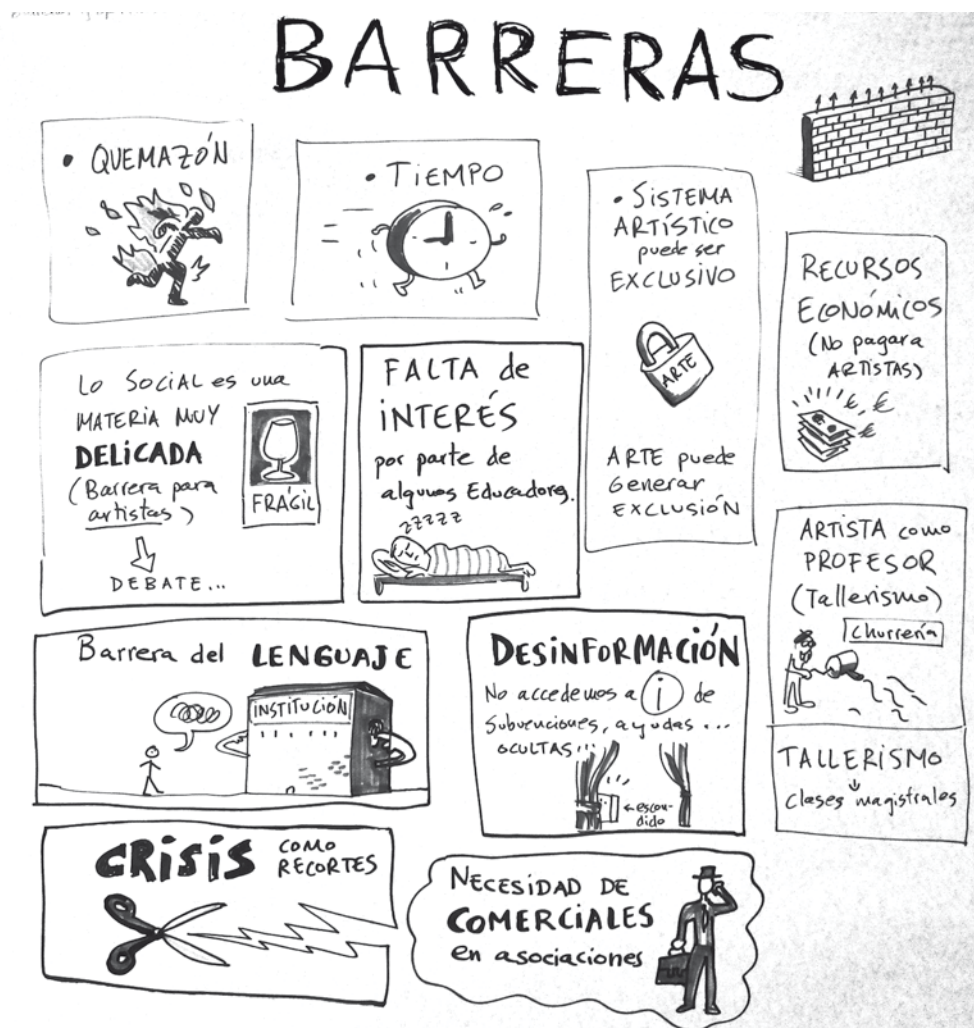 BARRERAS
• QUEMAZÓN
• TIEMPO
• SISTEMA
ARTÍSTICO
puede ser
EXCLUSIVO
ARTE
ARTE puede
Generar
EXCLUSIÓN
RECURSOS
ECONÓMICOS
(No pagar a
ARTISTAS)
€ €
€
Lo SOCIAL es una
MATERIA MUY
DELICADA
(Barrera para
artistas)
FRÁGIL
DEBATE...
FALTA de
INTERÉS
por parte de
algunos Educadores.
ZZZZZ
ARTISTA como
PROFESOR
(Tallerismo)
Churrería
TALLERISMO
Clases magistrales
Barrera del LENGUAJE
INSTITUCIÓN
DESINFORMACIÓN
No accedemos a i de
Subvenciones, ayudas...
OCULTAS...
escon-
dido
CRISIS COMO
RECORTES
NECESIDAD DE
COMERCIALES
en asociaciones